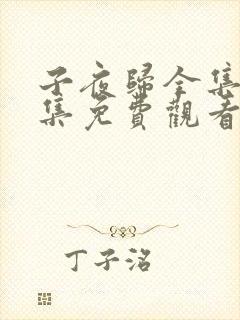 子夜歸全集
集免費觀看
丁子洺